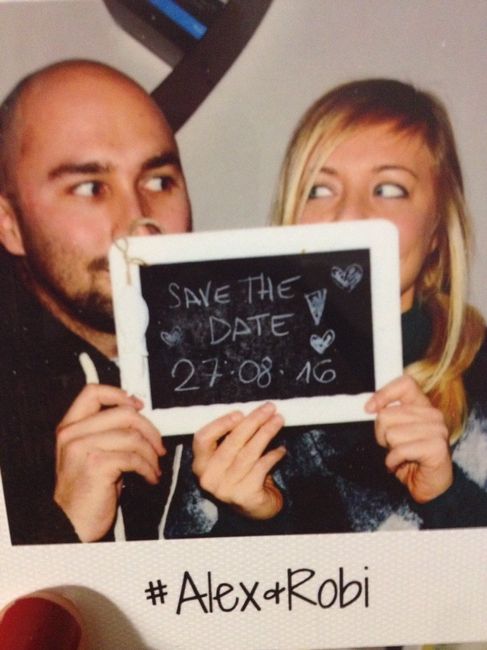 SAVE THE
DATE
27·08·16
#Alex&Robi